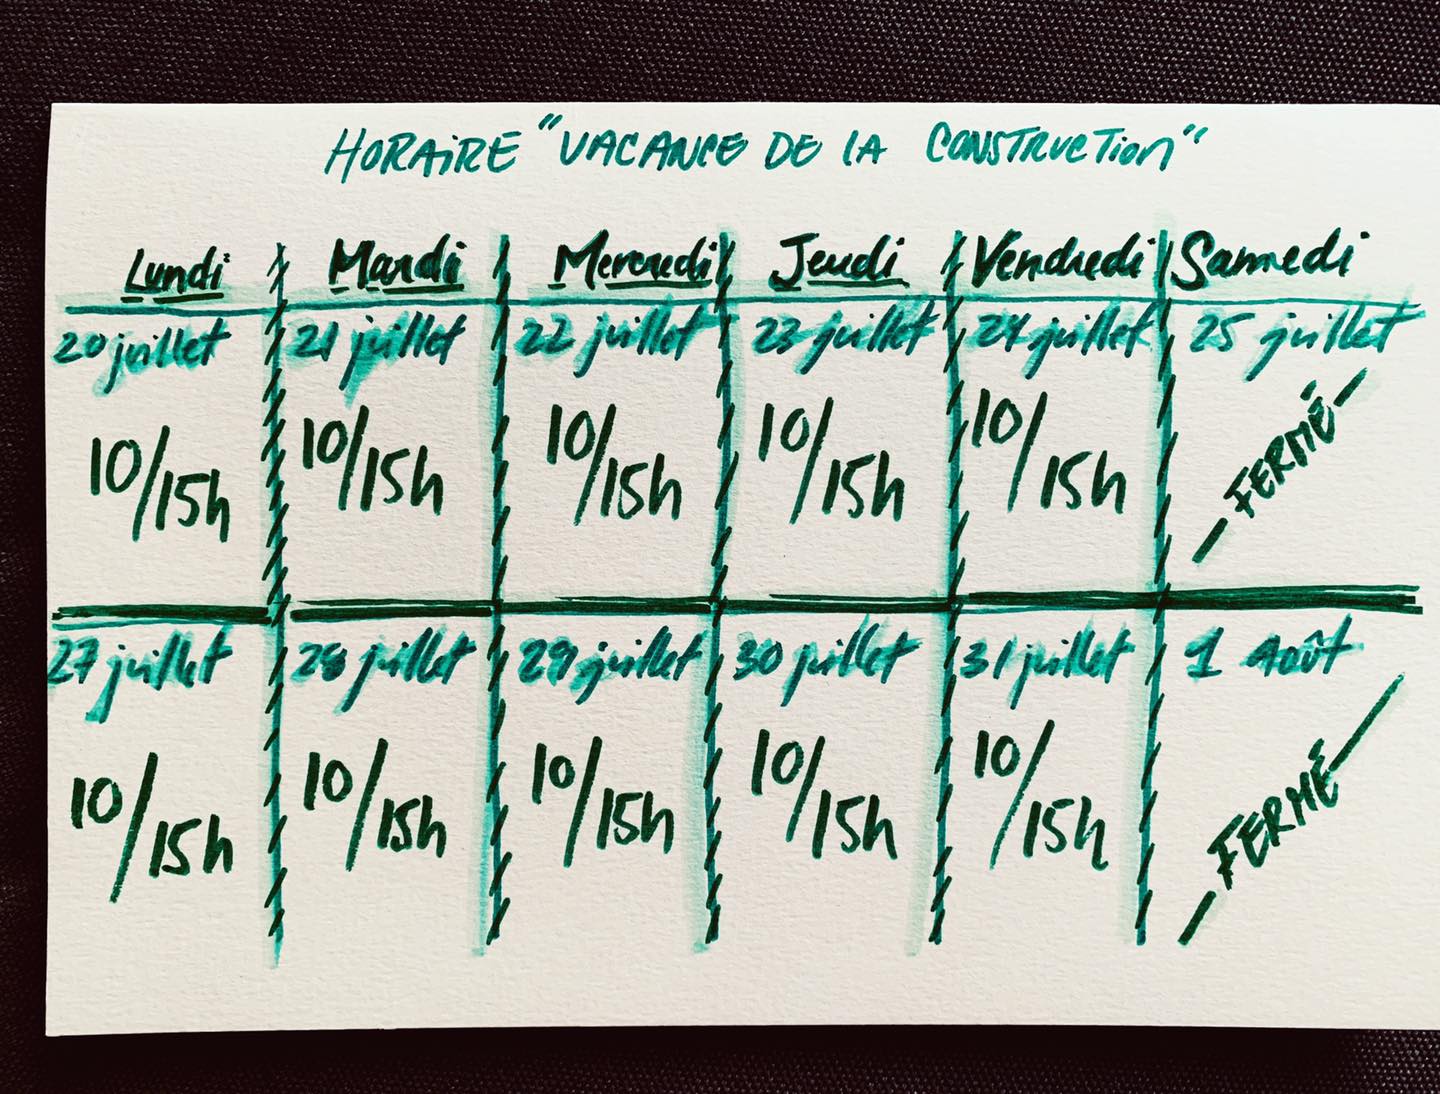 HORAIRE "VACANCE DE LA CONSTRUCTION"
Lundi Mardi Mercredi Jeudi Vendredi Samedi
20 juillet 21 juillet 22 juillet 23 juillet 24 juillet 25 juillet
10/15h 10/15h 10/15h 10/15h 10/15h - FERMÉ -
27 juillet 28 juillet 29 juillet 30 juillet 31 juillet 1 Août
10/15h 10/15h 10/15h 10/15h 10/15h - FERMÉ -